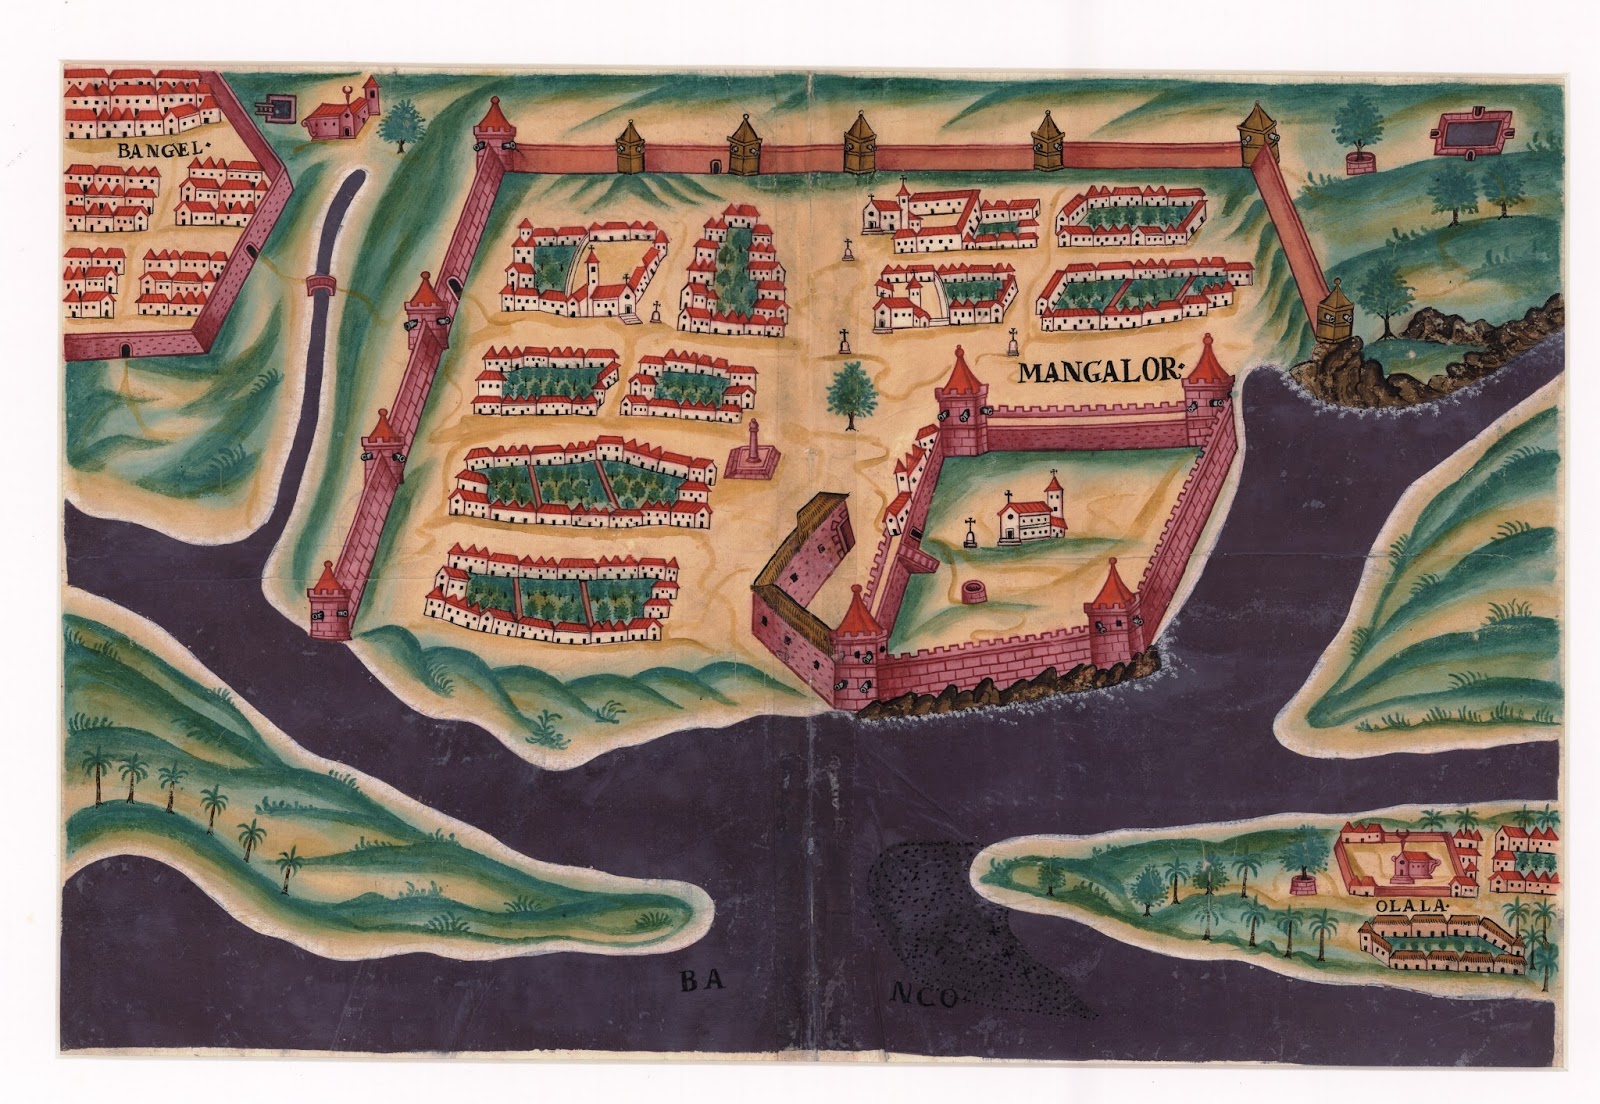 BANGEL·
MANGALOR·
OLALA·
BANCO